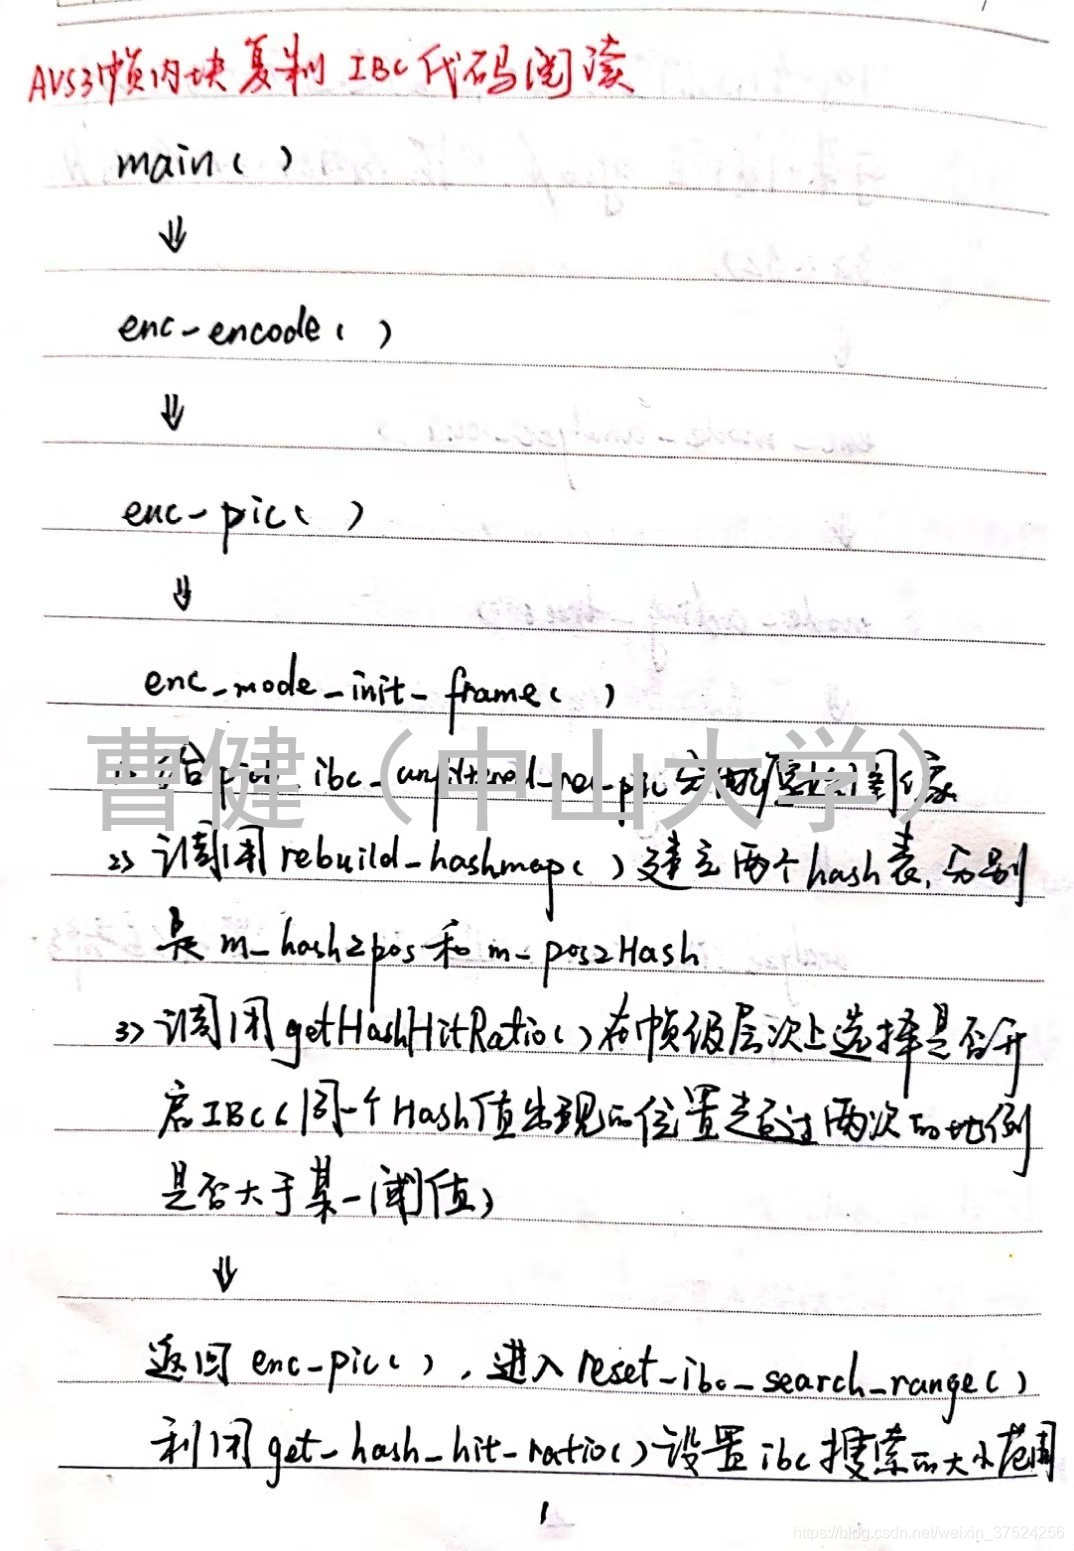 AVS3帧内块复制 IBC代码阅读
main( )
⇓
enc-encode( )
⇓
enc-pic( )
⇓
enc_mode_init_frame( )
1> 给 ibc_unfiltered_rec_pic 图像
曹健（中山大学）
2> 调用 rebuild-hashmap( ) 建立两个hash表,分别
是 m_hash2pos 和 m_pos2Hash
3> 调用 getHashHitRatio( ) 在帧级层次上选择是否开
启IBC(同一个Hash值出现的位置超过两次的比例
是否大于某一阈值)
⇓
返回 enc-pic( ), 进入 reset_ibc_search_range( )
利用 get_hash_hit_ratio( ) 设置 ibc 搜索的大小范围
1
https://blog.csdn.net/weixin_37524256